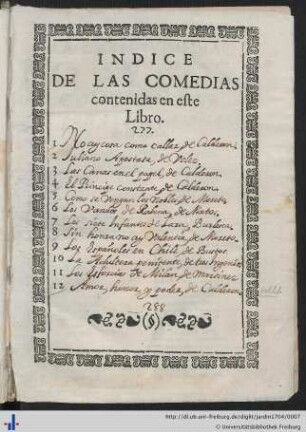 INDICE
DE LAS COMEDIAS
contenidas en este
Libro.
277.
1 No ay cosa como callar, de Calderon.
2 Juliano Apostata, de Velez.
3 Las Canas en el papel, de Calderon.
4 El Principe constante, de Calderon.
5 Como se vengan los Nobles, de Moreto.
6 Los Vandos de Rabena, de Matos.
7 Los Siete Infantes de Lara, Burlesca.
8 Sin honra no ay Valentia, de Moreto.
9 Los Españoles en Chile, de Bustos.
10 La Adultera penitente, de tres Ingenios
11 Los Esforcias de Milan, de Martinez.
12 Amor, honor, y poder, de Calderon.
288
(§)
http://dl.ub.uni-freiburg.de/diglit/jardin1704/0007
© Universitätsbibliothek Freiburg